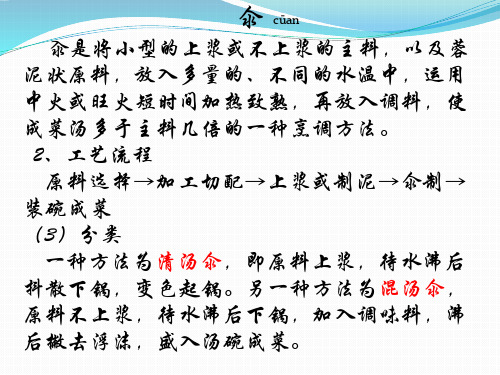 氽 cuān
氽是将小型的上浆或不上浆的主料，以及蓉
泥状原料，放入多量的、不同的水温中，运用
中火或旺火短时间加热致熟，再放入调料，使
成菜汤多于主料几倍的一种烹调方法。
2、工艺流程
原料选择→加工切配→上浆或制泥→氽制→
装碗成菜
(3) 分类
一种方法为清汤氽，即原料上浆，待水沸后
抖散下锅，变色起锅。另一种方法为混汤氽，
原料不上浆，待水沸后下锅，加入调味料，沸
后撇去浮沫，盛入汤碗成菜。